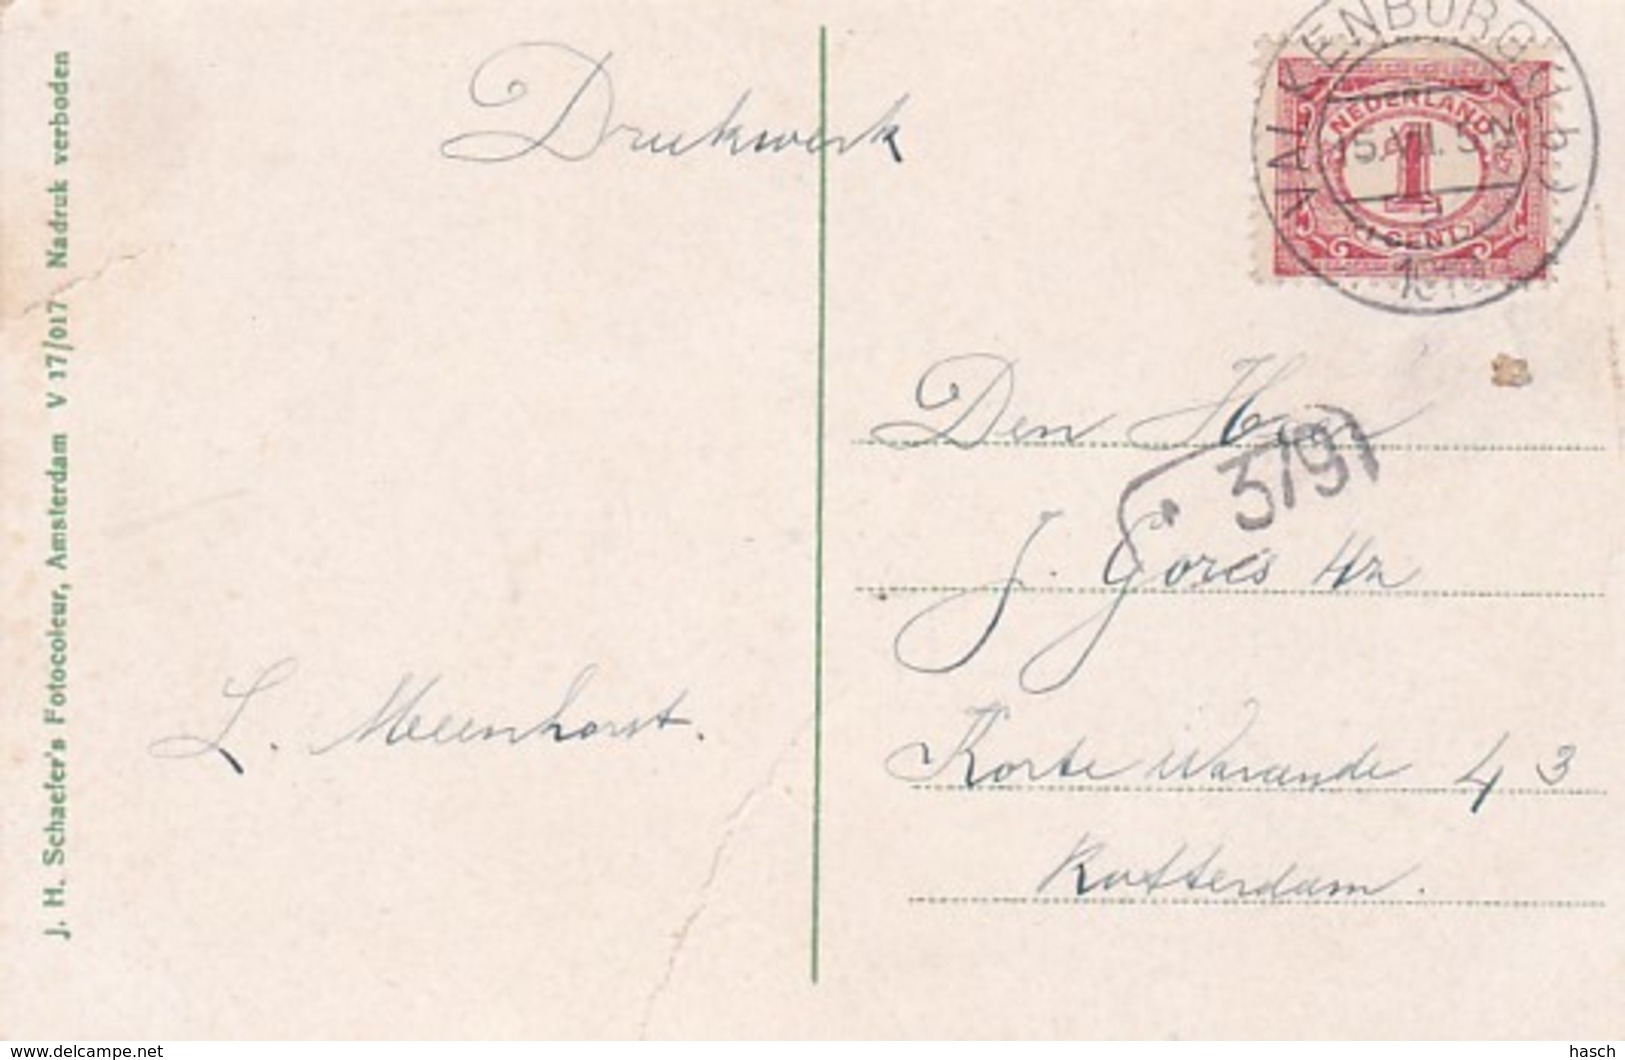 J. H. Schaefer's Fotocoleur, Amsterdam V 17/017 Nadruk verboden
Drukwerk
VALKENBURG
NEDERLAND
1
CENT
Den Heer
3791
J. Gorès Hzn
Korte Warande 43
Rotterdam.
L. Meenhorst.
www.delcampe.net
hasch